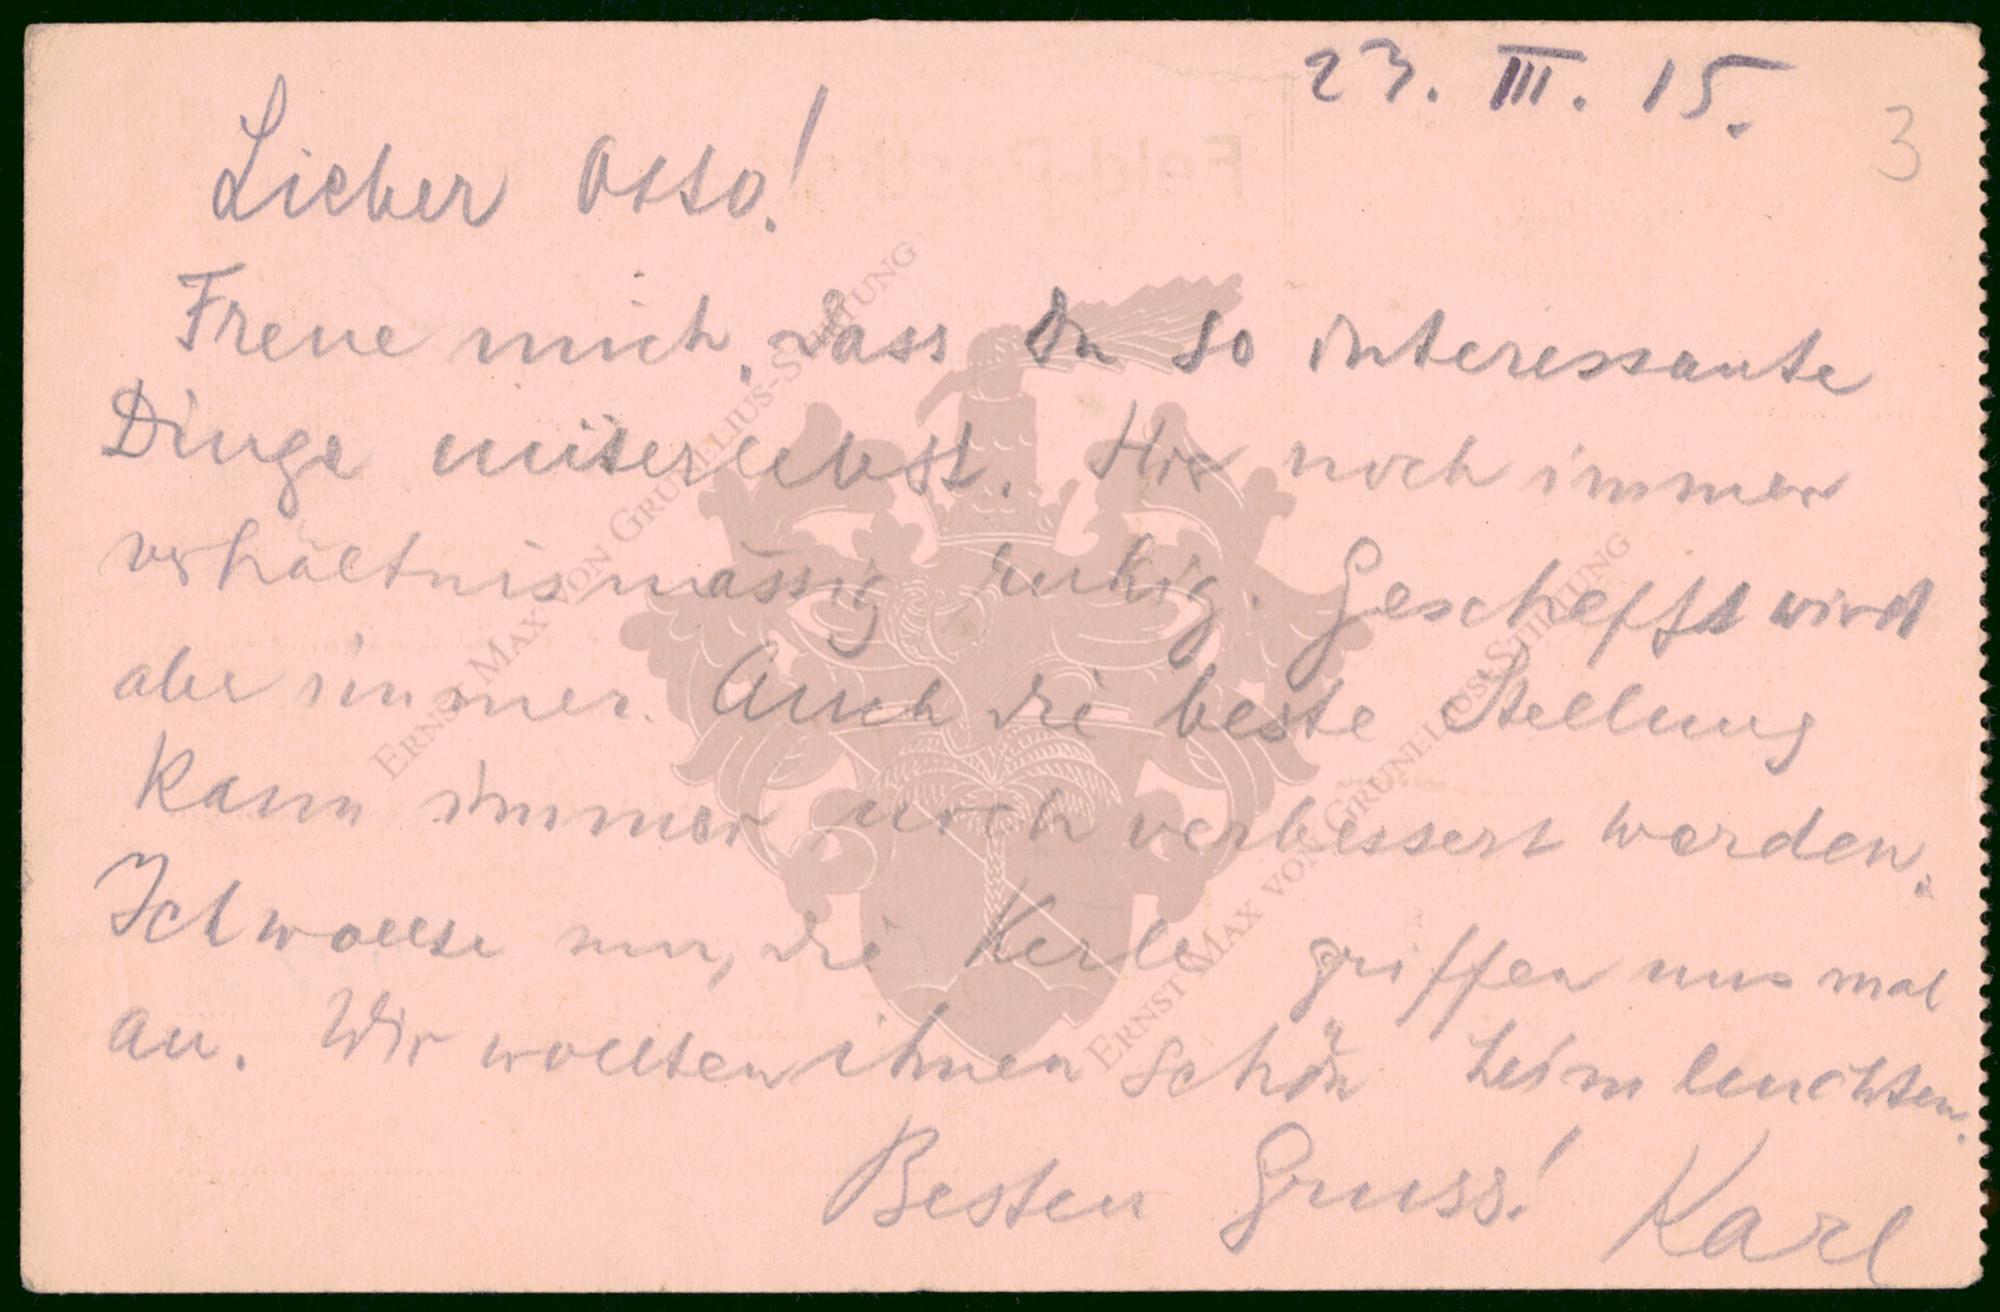 23. III. 15.
3
Lieber Otto!
Freue mich, dass Du so interessante
Dinge miterlebst. Hir noch immer
verhältnismässig ruhig. Geschafft wird
aber immer. Auch die beste Stellung
kann immer noch verbessert werden.
Ich wollte nur, die Kerle griffen uns mal
an. Wir wollten ihnen schön heimleuchten.
Besten Gruss! Karl
Feld-Post
ERNST MAX VON GRUNELIUS-STIFTUNG
ERNST MAX VON GRUNELIUS-STIFTUNG